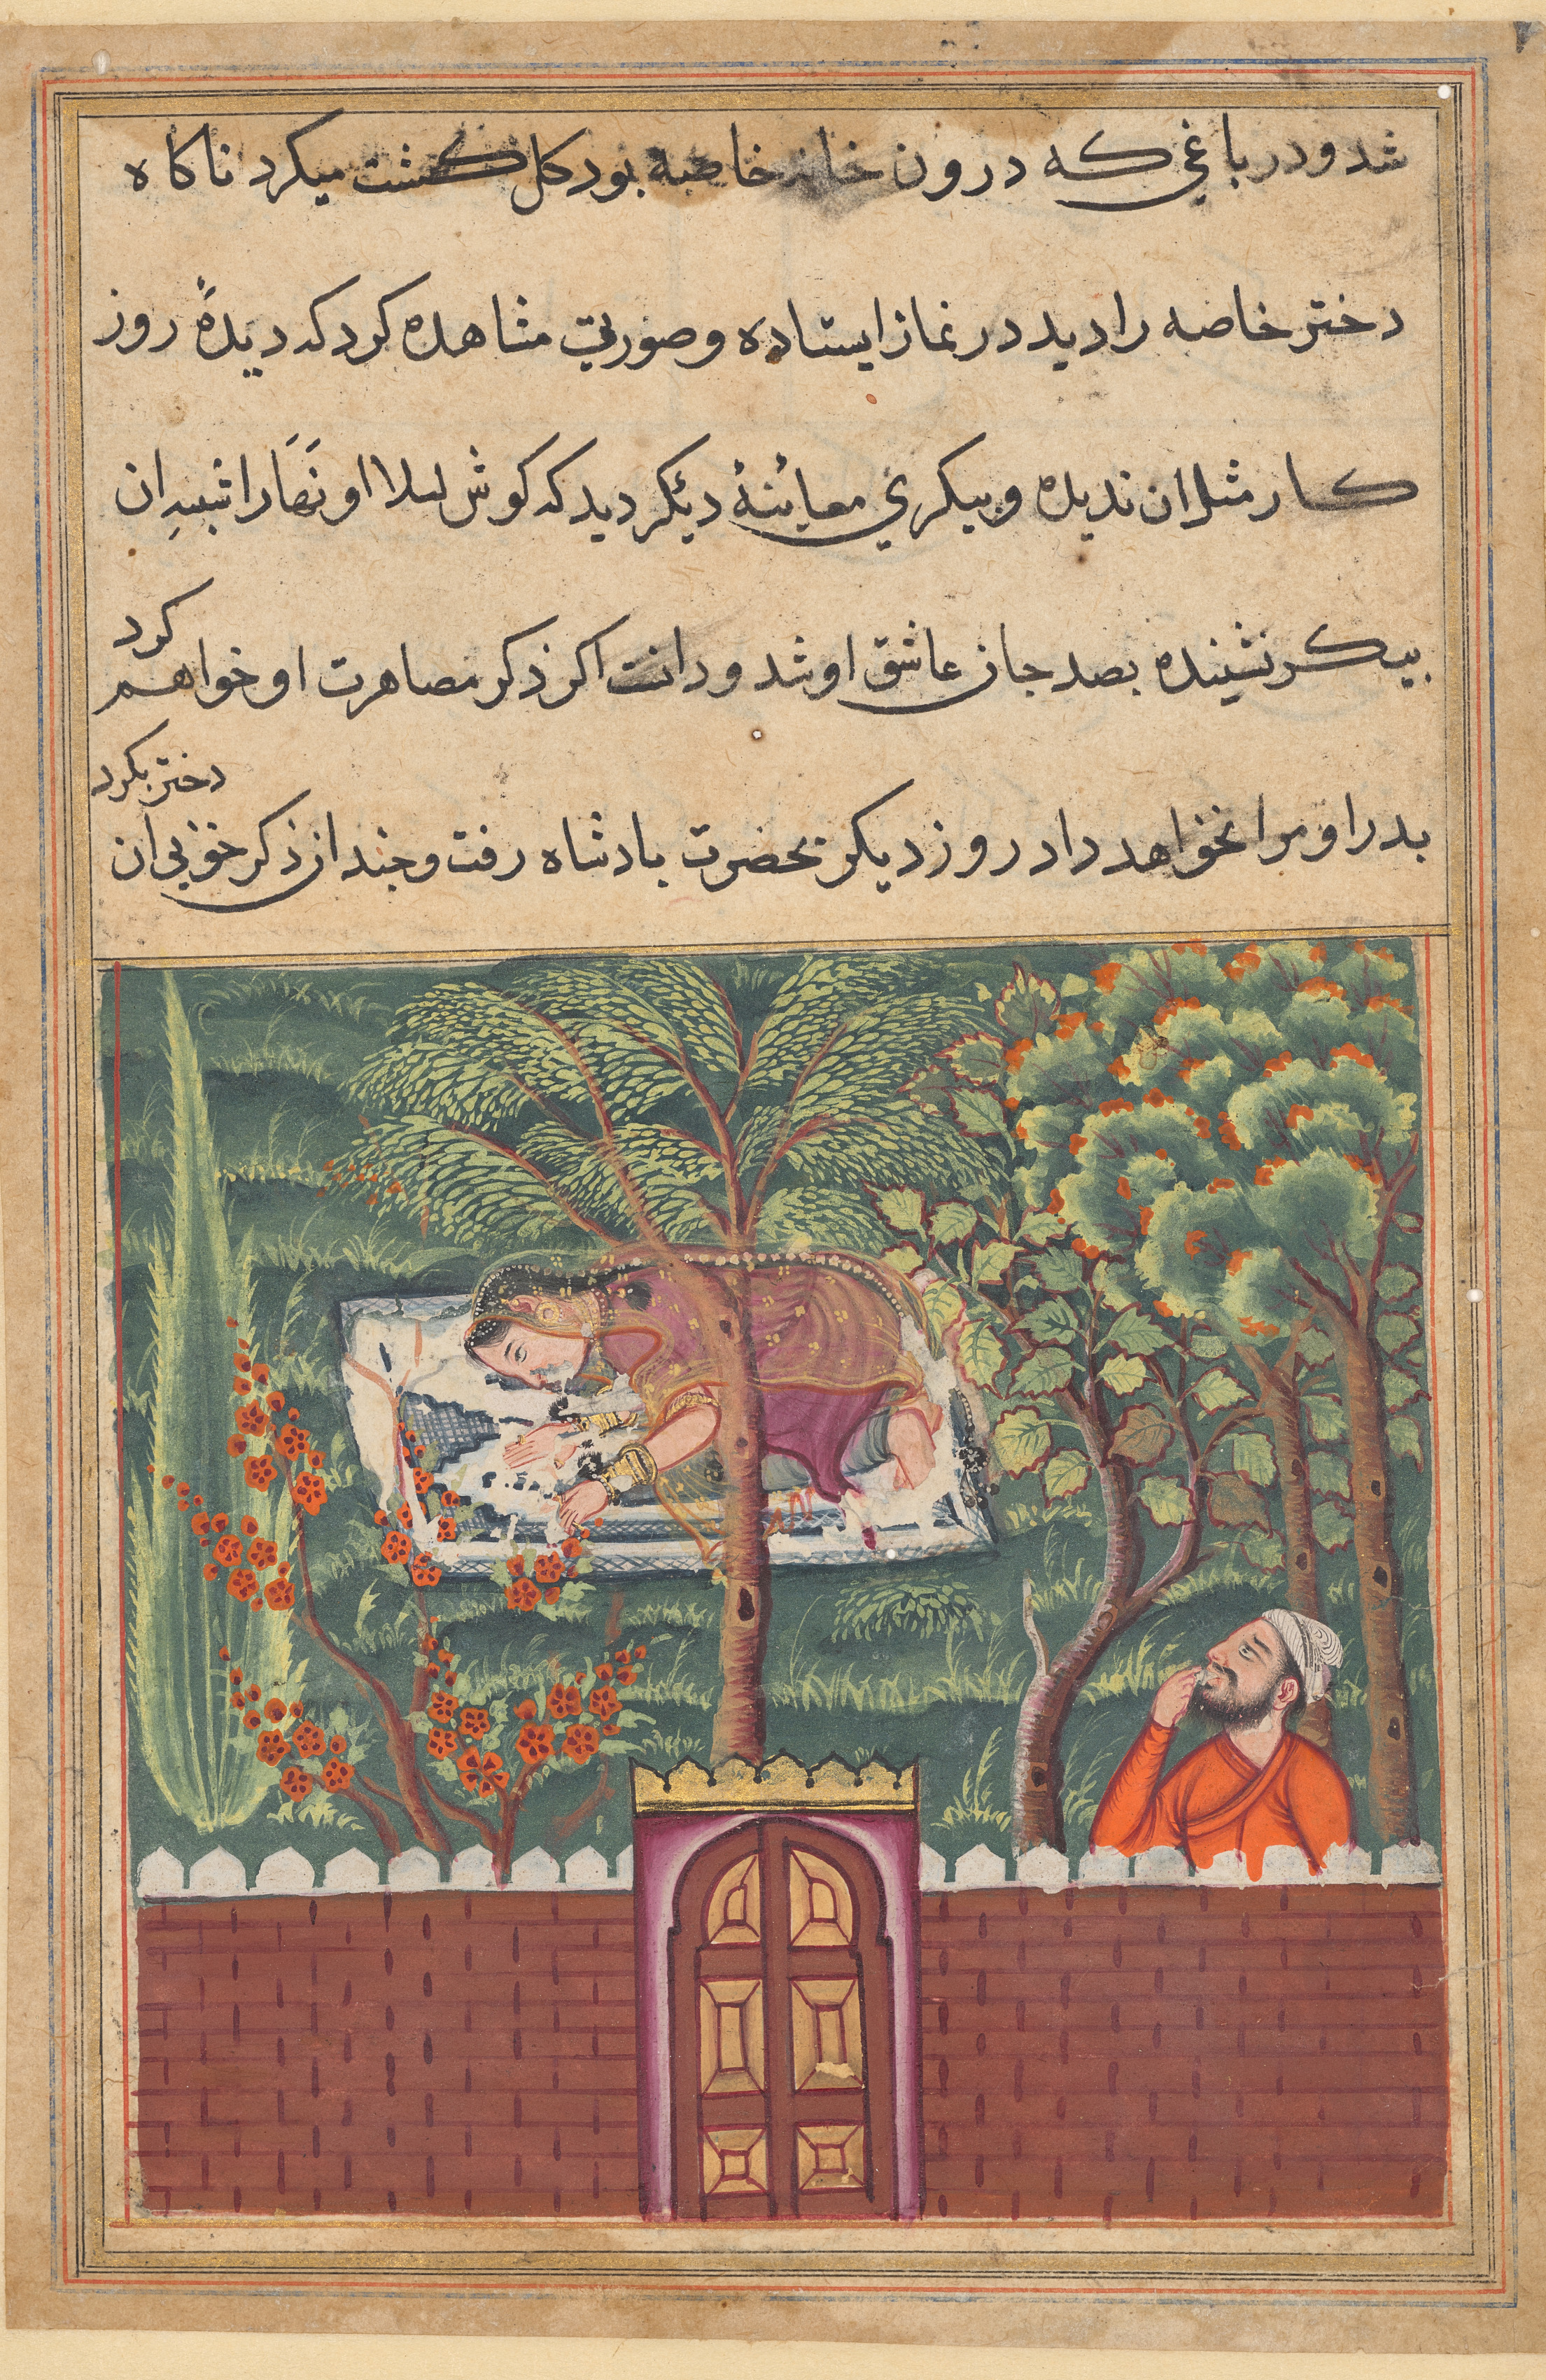 شد و در باغی که درون خانه خاصه بود کل کشت میکرد ناکاه
دختر خاصه را دید در نماز ایستاده و صورتی مشاهده کرد که دیدهٔ روز
کار مثل ان ندیده و پیکری معاینهٔ دیکر دید که کوش لیلا او نَهَارا شبیهِ ان
پیکر نشنیده بصد جان عاشق او شد و دانست اکر ذکر مصاهرت او خواهم کرد
پدر او مرا نخواهد داد روز دیکر بحضرت بادشاه رفت و چندان ذکر خوبی ان دختر بکرد